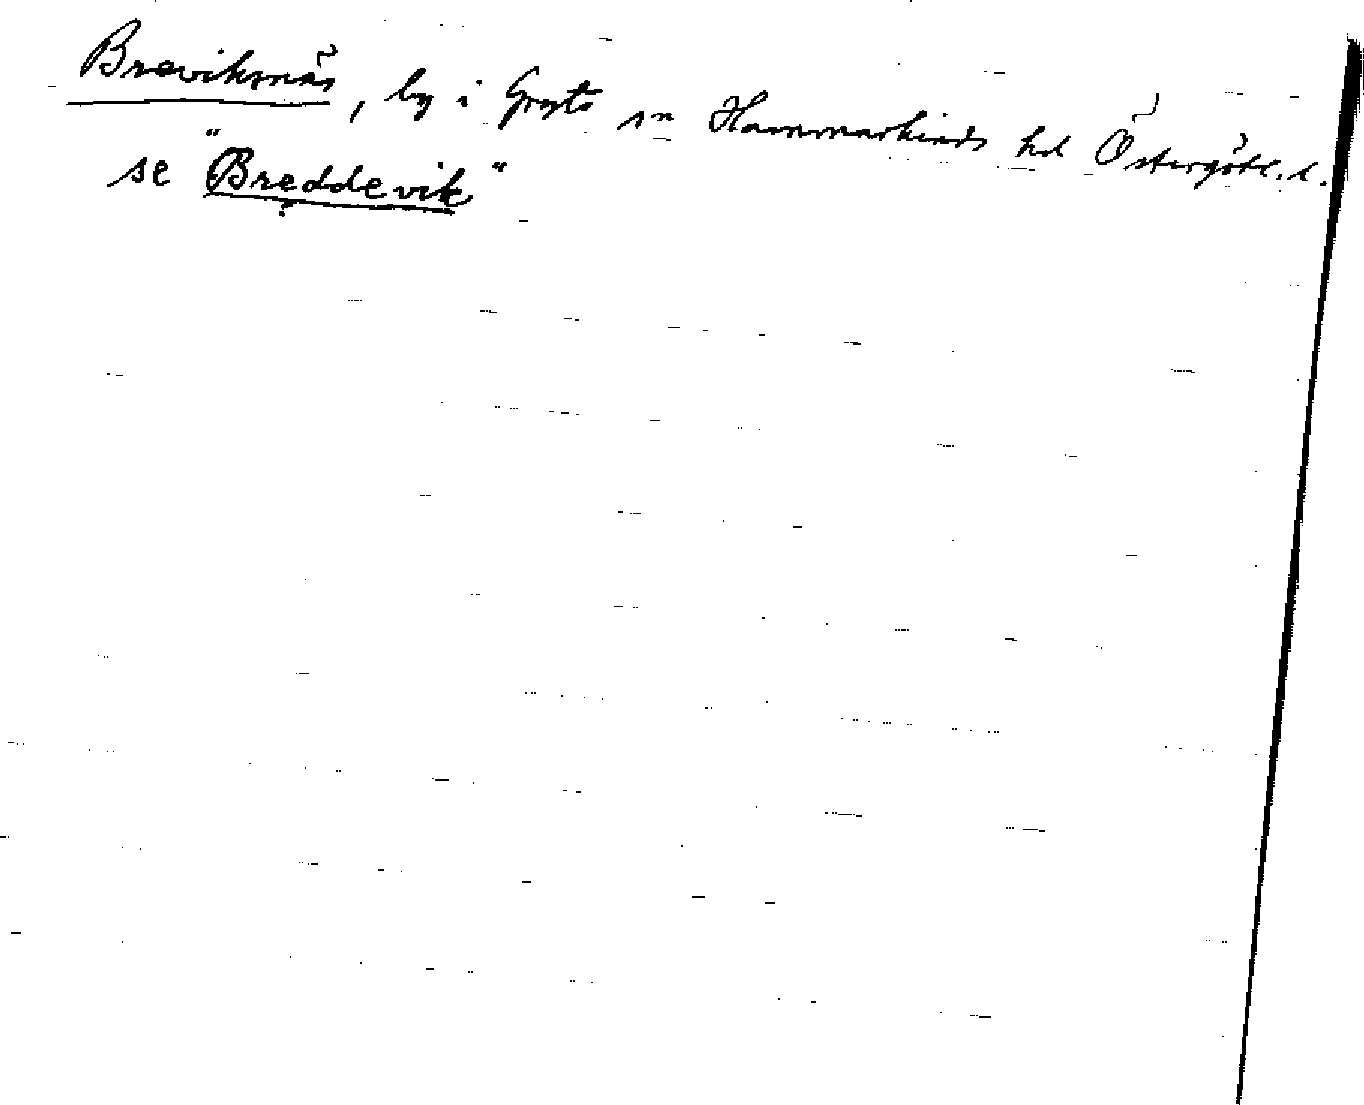 Breviksnäs, by i Gryts sn Hammarkinds hd Östergötl. l.
se "Breddevik"